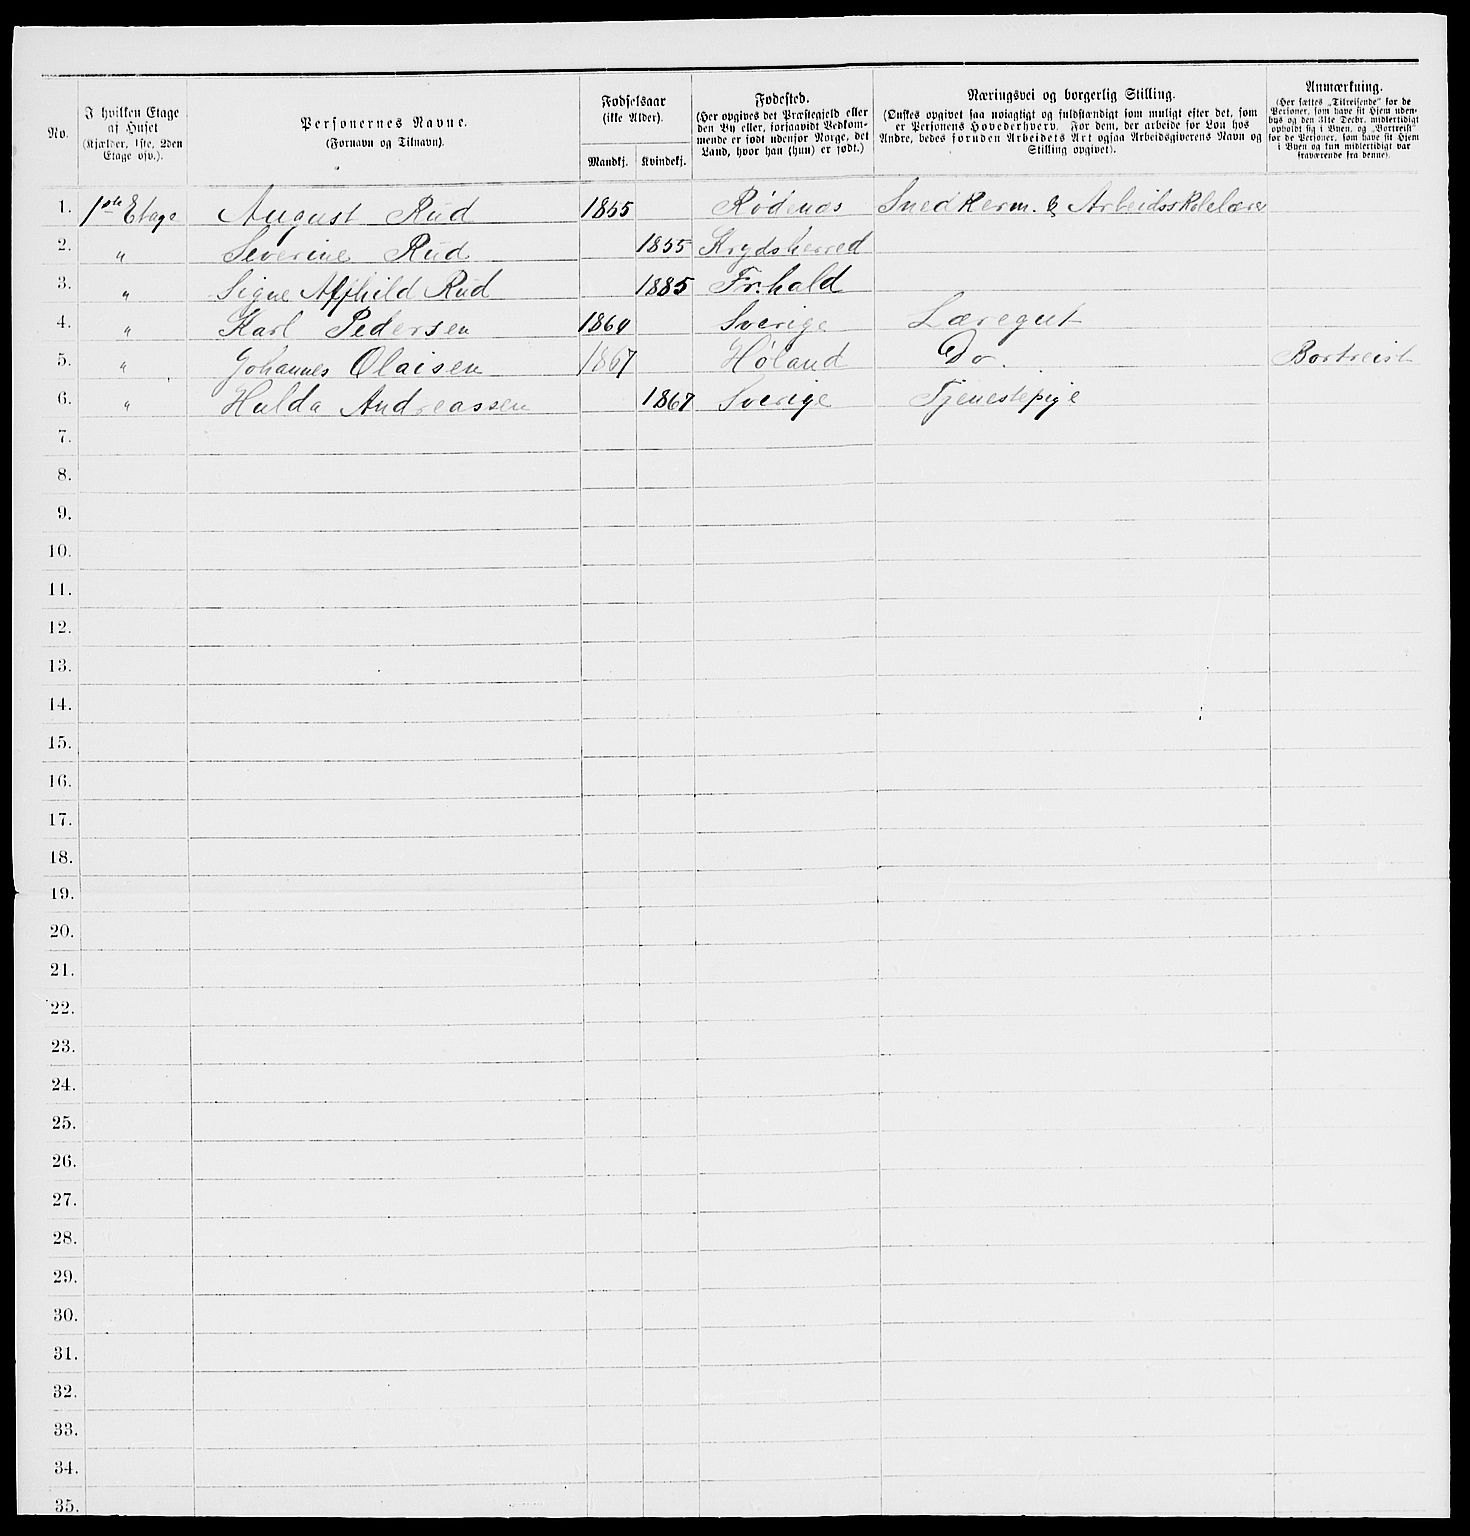 No.
I hvilken Etage
af Huset
(Kjælder, 1ste, 2den
Etage osv.).
Personernes Navne.
(Fornavn og Tilnavn).
Fødselsaar
(ikke Alder).
Mandkj. Kvindekj.
Fødested.
(Her opgives det Præstegjeld eller
den By eller, forsaavidt Vedkom-
mende er født udenfor Norge, det
Land, hvor han (hun) er født.)
Næringsvei og borgerlig Stilling.
(Ønskes opgivet saa nøiagtigt og fuldstændigt som muligt efter det, som
er Personens Hovederhverv. For dem, der arbeide for Løn hos
Andre, bedes foruden Arbeidets Art ogsaa Arbeidsgiverens Navn og
Stilling opgivet).
Anmærkning.
(Her sættes „Tilreisende" for de
Personer, som have sit Hjem uden-
bys og den 31te Decbr. midlertidigt
opholdt sig i Byen, og „Bortreist"
for de Personer, som have sit Hjem
i Byen og kun midlertidigt var
fraværende fra denne).
1. 1ste Etage August Rud 1855 Rødenæs Snedkerm. & Arbeidsskolelærer
2. " Severine Rud 1855 Krydsherred
3. " Signe Rud 1885 Fr.hald
4. " Karl Pedersen 1864 Sverige Læregut
5. " Johannes Olaisen 1867 Høland Do. Bortreist
6. " Hulda Andreassen 1867 Sverige Tjenestepige
7.
8.
9.
10.
11.
12.
13.
14.
15.
16.
17.
18.
19.
20.
21.
22.
23.
24.
25.
26.
27.
28.
29.
30.
31.
32.
33.
34.
35.